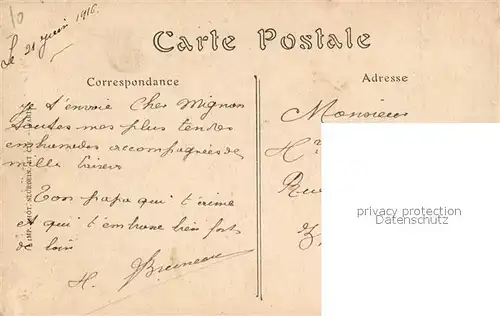 10
Le 21 juin 1916.
Carte Postale
Correspondance
Adresse
je t'envoie Cher Mignon
toutes mes plus tendres
accompagnées de
mille baisers
Ton papa qui t'aime
et qui t'embrasse bien fort
de loin
H. Bruneau
Monsieur
H
Rue
privacy protection
Datenschutz